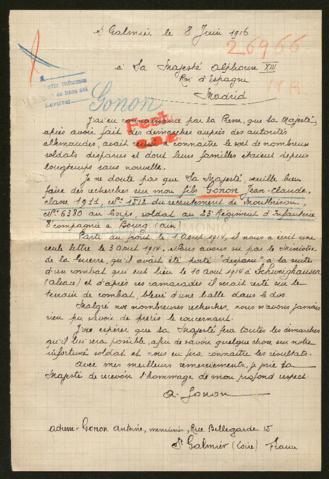 St Galmier, le 8 Juin 1916
26966
à Sa Majesté Alphonse XIII
Roi d'Espagne
Madrid
Gonon
J'ai eu connaissance par la Presse, que Sa Majesté,
après avoir fait des démarches auprès des autorités
allemandes, avait réussi à connaître le sort de nombreux
soldats disparus et dont leurs familles étaient depuis
longtemps sans nouvelle.
Je ne doute pas que Sa Majesté, veuille bien
faire des recherches sur mon fils Gonon Jean-Claude,
classe 1911, N° 1512 du recrutement de Montbrison,
N° 6380 au Corps, soldat au 23 Régiment d'Infanterie
compagnie à Bourg (Ain)
Parti du front le 1 Août 1914, il nous a écrit une
seule lettre le 3 Août 1914. Nous avons su par le Ministère
de la Guerre, qu'il avait été porté "disparu" à la suite
d'un combat qui eut lieu le 10 Août 1914 à
(Alsace) et d'après ses camarades il serait resté sur le
terrain de combat, blessé d'une balle dans le dos
Malgré nos nombreuses recherches nous n'avons jamais
rien pu savoir de précis le concernant.
J'ose espérer que Sa Majesté fera toutes les démarches
qu'il lui sera possible, afin de savoir quelque chose sur notre
infortuné soldat et nous en fera connaître les résultats.
Avec mes meilleurs remerciements, je prie Sa
Majesté de recevoir l'hommage de mon profond respect
A. Gonon
adresse: Gonon Antoine, menuisier, Rue Bellegarde 15
St Galmier (Loire) France